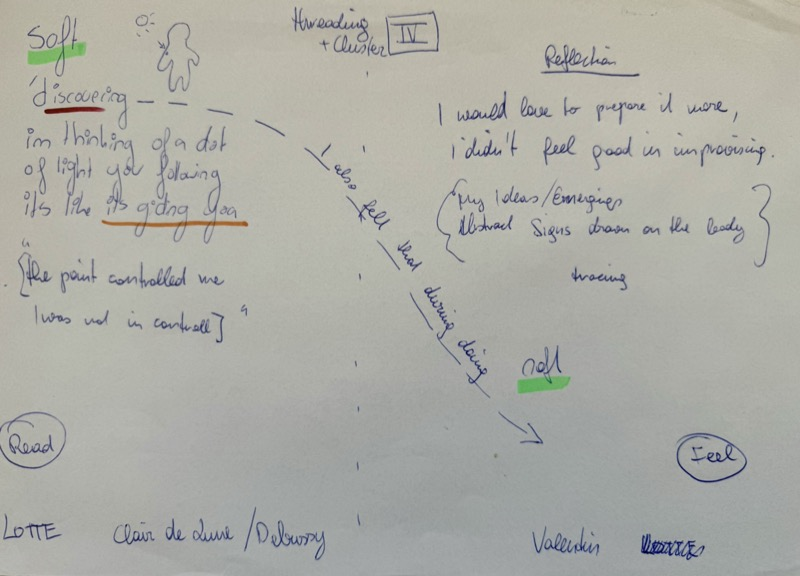 threading
+ Cluster
IV
Soft
'discovering
im thinking of a dot
of light you following
it's like its giding you
"
{the point controlled me
I was not in controll}"
Read
LOTTE
Clair de Lune / Debussy
I also felt that during doing
Reflection
I would love to prepare it more,
i didn't feel good in improvising.
{My Ideas/Emergings
Abstract Signs drawn on the body}
tracing
soft
Feel
Valentin